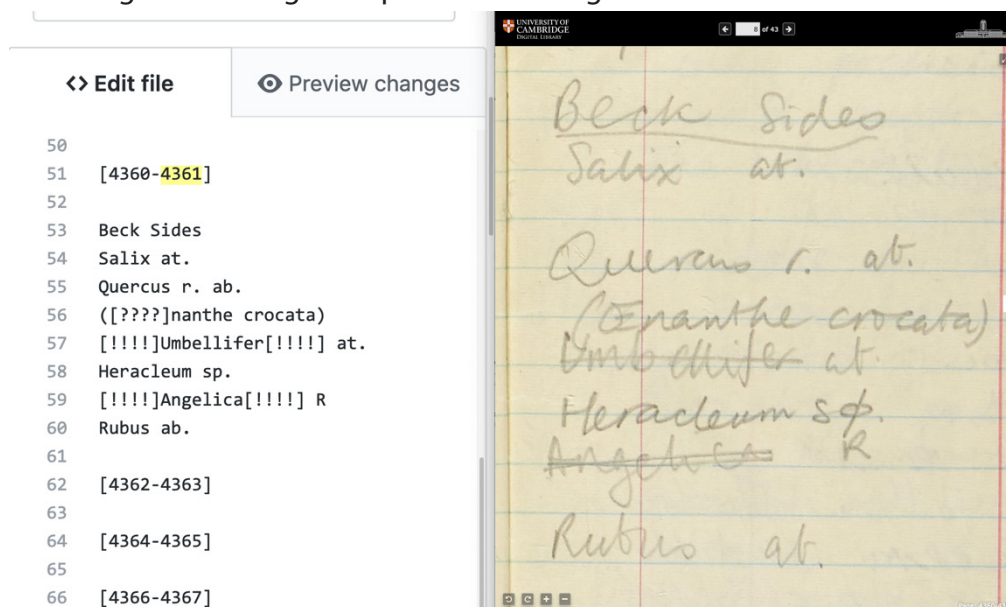 <> Edit file
Preview changes
50
51 [4360-4361]
52
53 Beck Sides
54 Salix at.
55 Quercus r. ab.
56 ([????]nanthe crocata)
57 [!!!!]Umbellifer[!!!!] at.
58 Heracleum sp.
59 [!!!!]Angelica[!!!!] R
60 Rubus ab.
61
62 [4362-4363]
63
64 [4364-4365]
65
66 [4366-4367]
UNIVERSITY OF
CAMBRIDGE
DIGITAL LIBRARY
8 of 43
Beck Sides
Salix at.
Quercus r. ab.
(Œnanthe crocata)
Umbellifer at.
Heracleum sp.
Angelica R
Rubus ab.